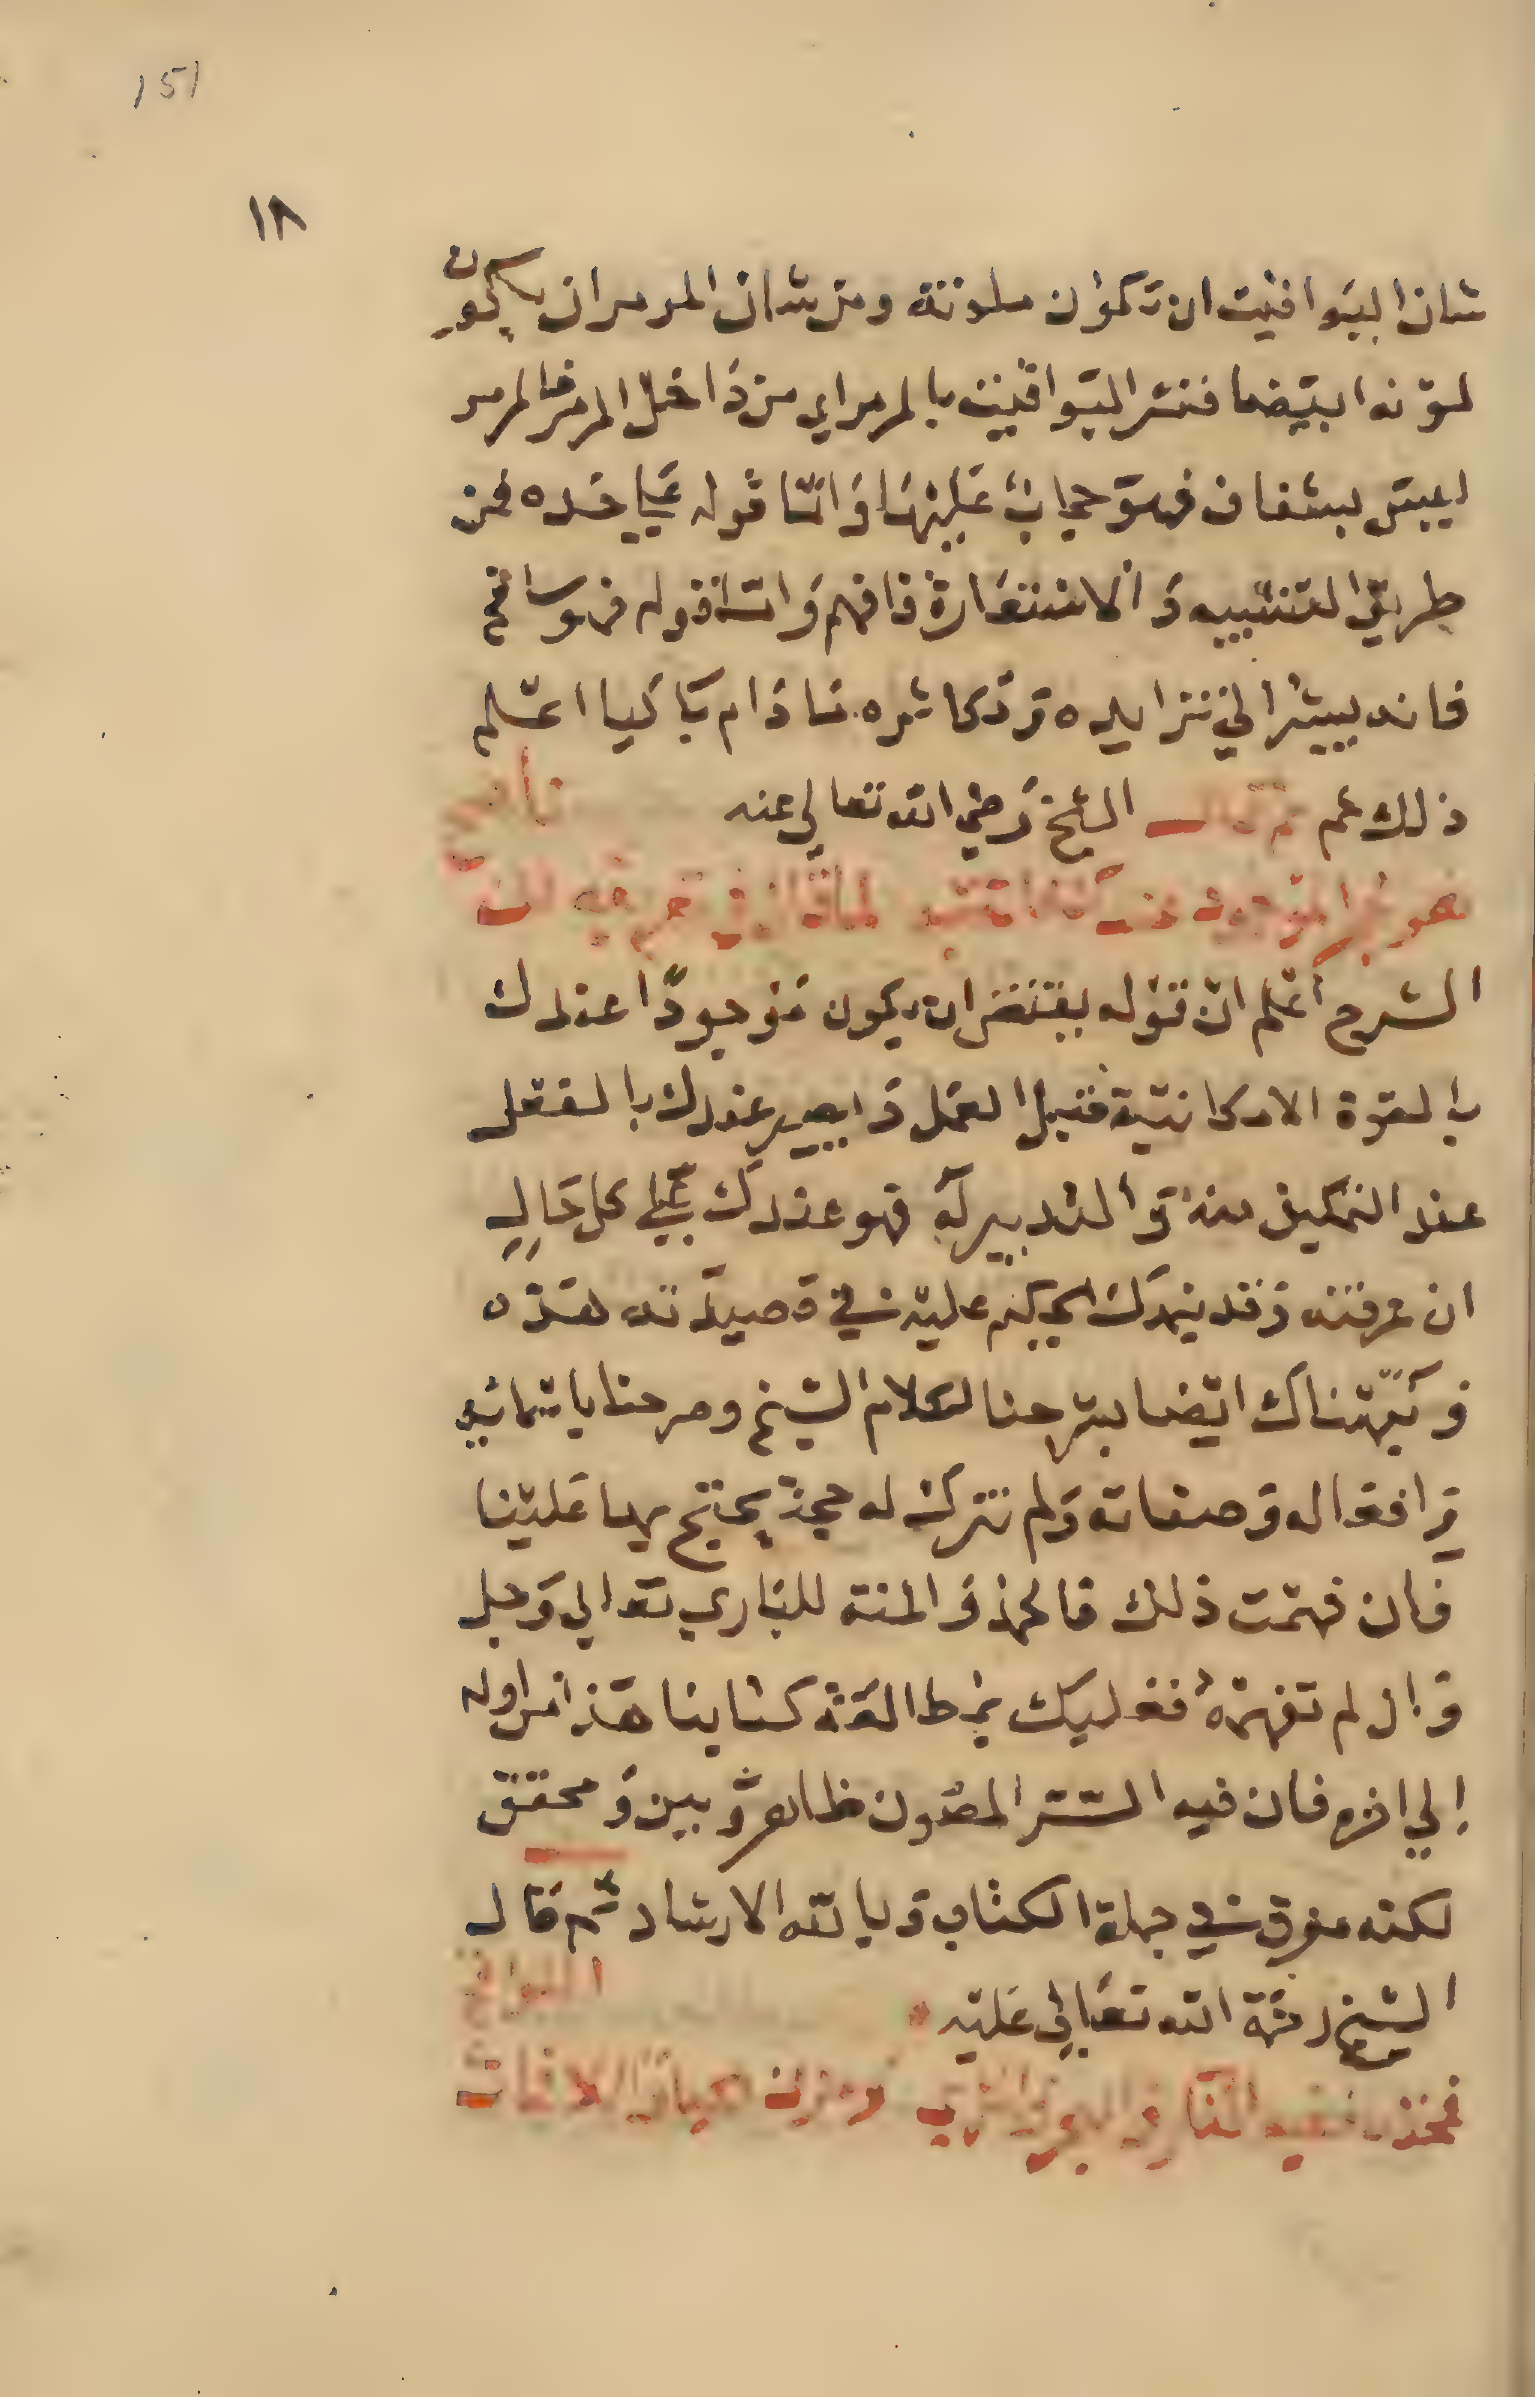 151
١٨
شان اليواقيت ان تكون ملونة ومن شان المرمر ان يكون
لونه ابيضا فستر اليواقيت بالمرمر اي من داخل المرمر فالمرمر
ليس بشفاف فهو حجاب عليها واما قوله علي خده فمن
طريق التشبيه والاستعارة فافهم واما قوله فهو سافح
فانه يشير الي تزايده وتكاثره ما دام باكيا اعلم
ذلك ثم قال الشيخ رضي الله تعالي عنه
فهو
الشرح اعلم ان قوله يقتضي ان يكون موجودا عندك
بالقوة الامكانية قبل العمل ويصير عندك بالفعل
عند التمكين منه والتدبير له فهو عندك علي كل حال
ان عرفته وقد نبهك الحكيم عليه في قصيدته هذه
ونبهناك ايضا بشرحنا لكلام الشيخ وصرحنا باسمائه
وافعاله وصفاته ولم نترك له حجة يحتج بها علينا
فان فهمت ذلك فالحمد والمنة للباري تعالي وجل
وان لم تفهمه فعليك بمطالعة كتابنا هذا من اوله
الي اخره فان فيه السر المصون ظاهر وبين ومحقق
لكنه مفرق في جملة الكتاب وبالله الارشاد ثم قال
الشيخ رحمة الله تعالي عليه
فخذ